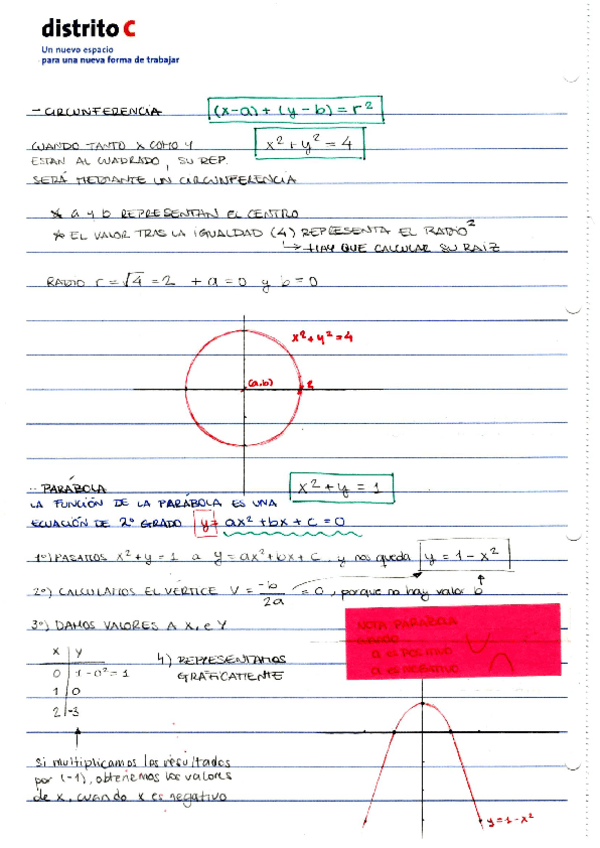 distrito C
Un nuevo espacio
para una nueva forma de trabajar
- CIRCUNFERENCIA (x-a) + (y-b) = r²
CUANDO TANTO X COMO Y x² + y² = 4
ESTAN AL CUADRADO, SU REP.
SERÁ MEDIANTE UN CIRCUNFERENCIA
* a y b REPRESENTAN EL CENTRO
* EL VALOR TRAS LA IGUALDAD (4) REPRESENTA EL RADIO²
↳ HAY QUE CALCULAR SU RAÍZ
RADIO r = √4 = 2 + a = 0 y b = 0
x² + y² = 4
(a,b) 2
- PARÁBOLA x² + y = 1
LA FUNCIÓN DE LA PARÁBOLA ES UNA
ECUACIÓN DE 2º GRADO y= ax² + bx + c = 0
1º) PASAMOS x² + y = 1 a y = ax² + bx + c, y nos queda y = 1 - x²
2º) CALCULAMOS EL VÉRTICE V = -b/2a = 0, porque no hay valor b
3º) DAMOS VALORES A X, e Y
NOTA PARÁBOLA
CUANDO
a es POSITIVO
a es NEGATIVO
x | y
0 | 1-0² = 1
1 | 0
2 | -3
4) REPRESENTAMOS
GRÁFICAMENTE
Si multiplicamos los resultados
por (-1), obtenemos los valores
de x, cuando x es negativo
y = 1 - x²